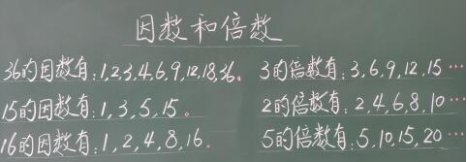 因数和倍数
36的因数有:1,2,3,4,6,9,12,18,36。
15的因数有:1,3,5,15。
16的因数有:1,2,4,8,16.
3的倍数有:3,6,9,12,15…
2的倍数有:2,4,6,8,10…
5的倍数有:5,10,15,20…